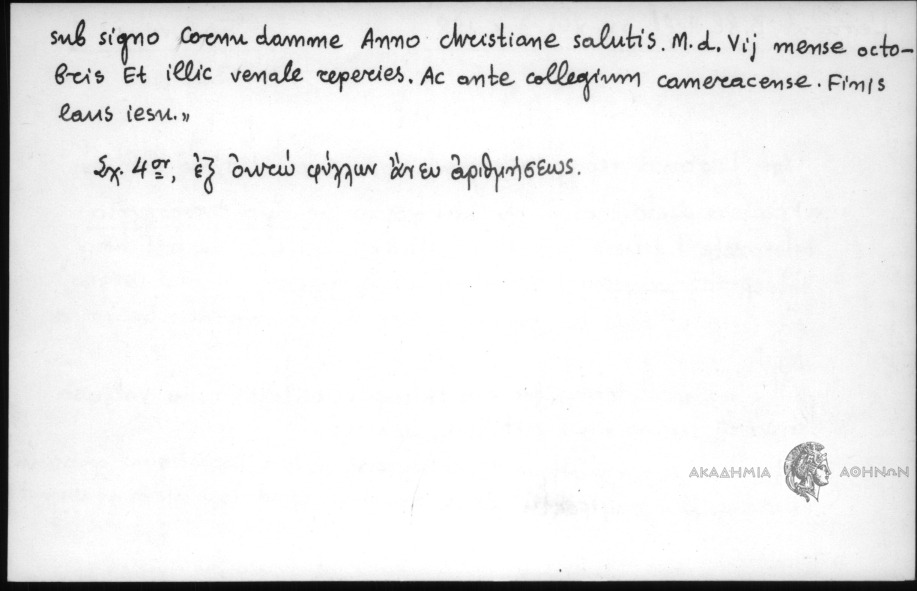 sub signo Cornu damme Anno christiane salutis. M.d. Vij mense octo-
bris Et illic venale reperies. Ac ante collegium cameracense. Finis
laus iesu.»
Σχ. 4ον, ἐξ ὀκτὼ φύλλων ἄνευ ἀριθμήσεως.
ΑΚΑΔΗΜΙΑ ΑΘΗΝΩΝ